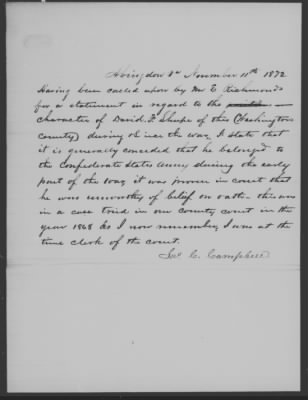 Abingdon Va November 11th 1872
Having been called upon by Mr E Richmond
for a statement in regard to the
character of David. F. Sharpe of this (Washington
county) during & since the war, I state that
it is generally conceded that he belonged to
the Confederate States Army during the early
part of the war, it was proven in court that
he was unworthy of belief on oath - this was
in a case tried in our county court in the
year 1868 As I now remember, I was at the
time clerk of the court.
Jas C. Campbell